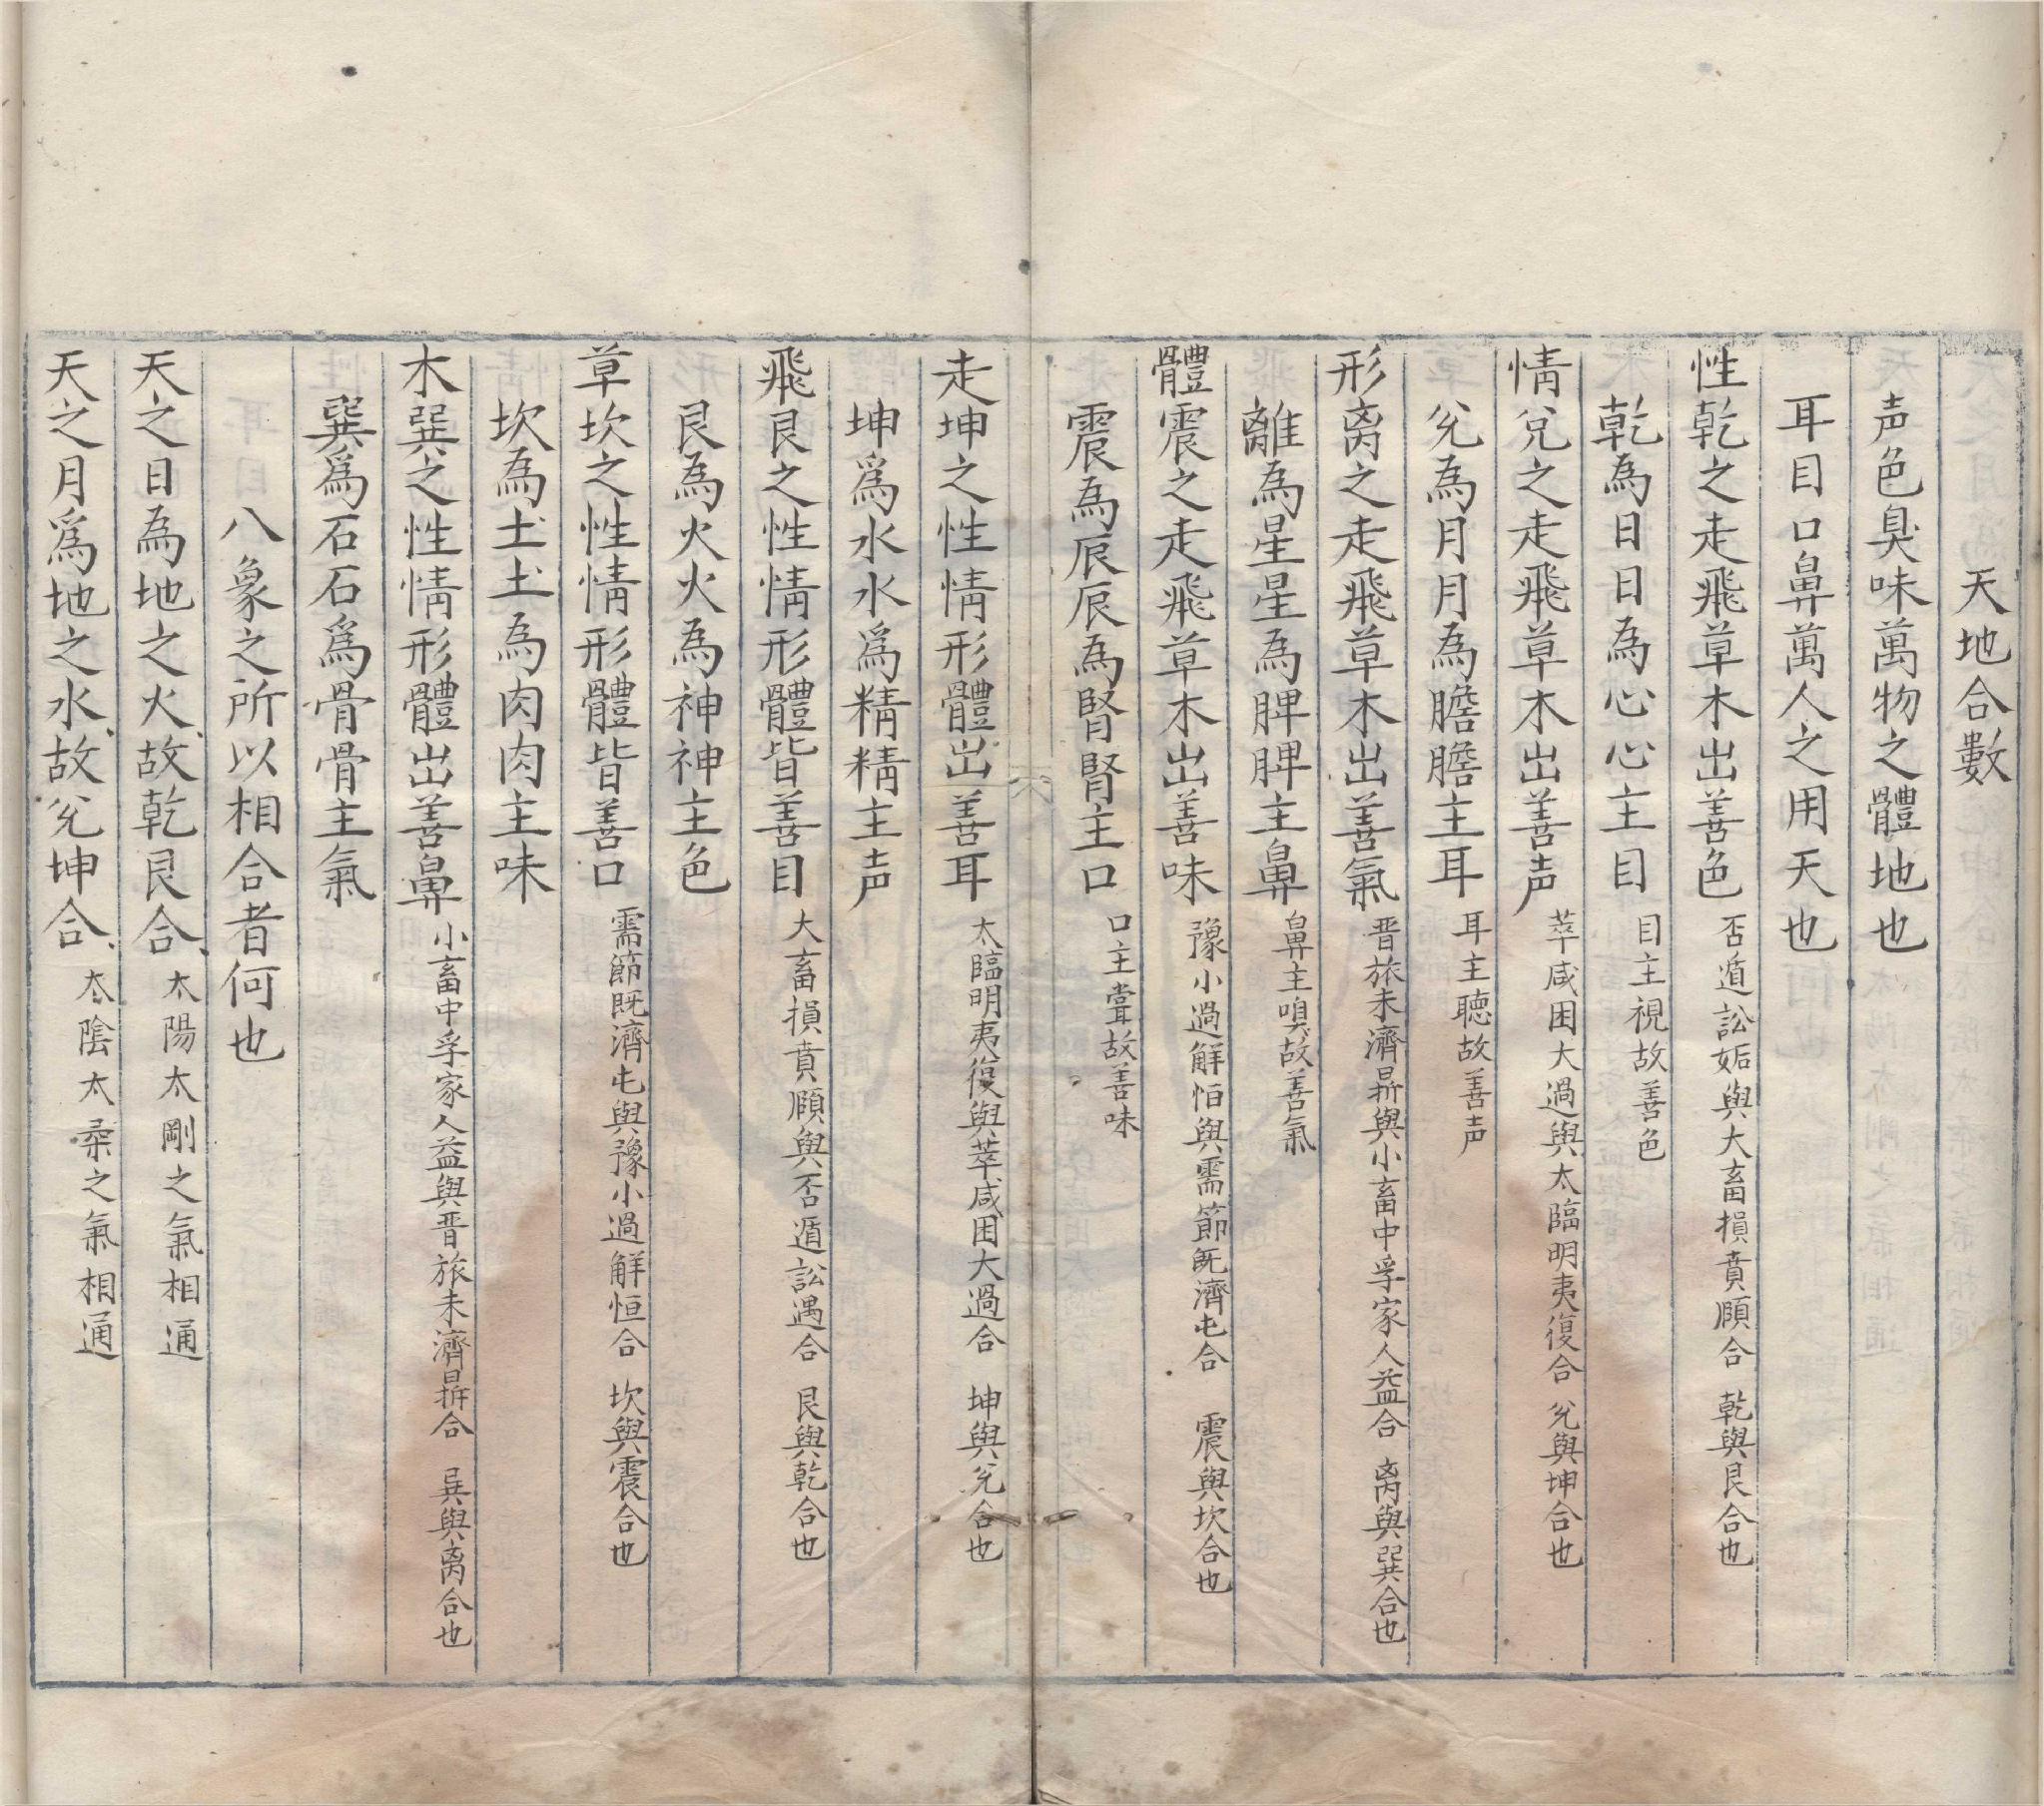 天地合數
声色臭味萬物之體地也
耳目口鼻萬人之用天也
性乾之走飛草木出善色 否遁訟姤與大畜損賁頤合 乾與艮合也
乾為日日為心心主目 目主視故善色
情兌之走飛草木出善声 萃咸困大過與太臨明夷復合 兌與坤合也
兌為月月為膽膽主耳 耳主聴故善声
形离之走飛草木出善氣 晋旅未濟昇與小畜中孚家人益合 离與巽合也
離為星星為脾脾主鼻 鼻主嗅故善氣
體震之走飛草木出善味 豫小過解恒與需節既濟屯合 震與坎合也
震為辰辰為腎腎主口 口主嘗故善味
走坤之性情形體出善耳 太臨明夷復與萃咸困大過合 坤與兌合也
坤爲水水爲精精主声
飛艮之性情形體皆善目 大畜損賁頤與否遁訟遇合 艮與乾合也
艮為火火為神神主色
草坎之性情形體皆善口 需節既濟屯與豫小過解恒合 坎與震合也
坎為土土為肉肉主味
木巽之性情形體出善鼻 小畜中孚家人益與晋旅未濟昇合 巽與离合也
巽爲石石爲骨骨主氣
八象之所以相合者何也
天之日為地之火故乾艮合 太陽太剛之氣相通
天之月爲地之水故兌坤合 太陰太柔之氣相通